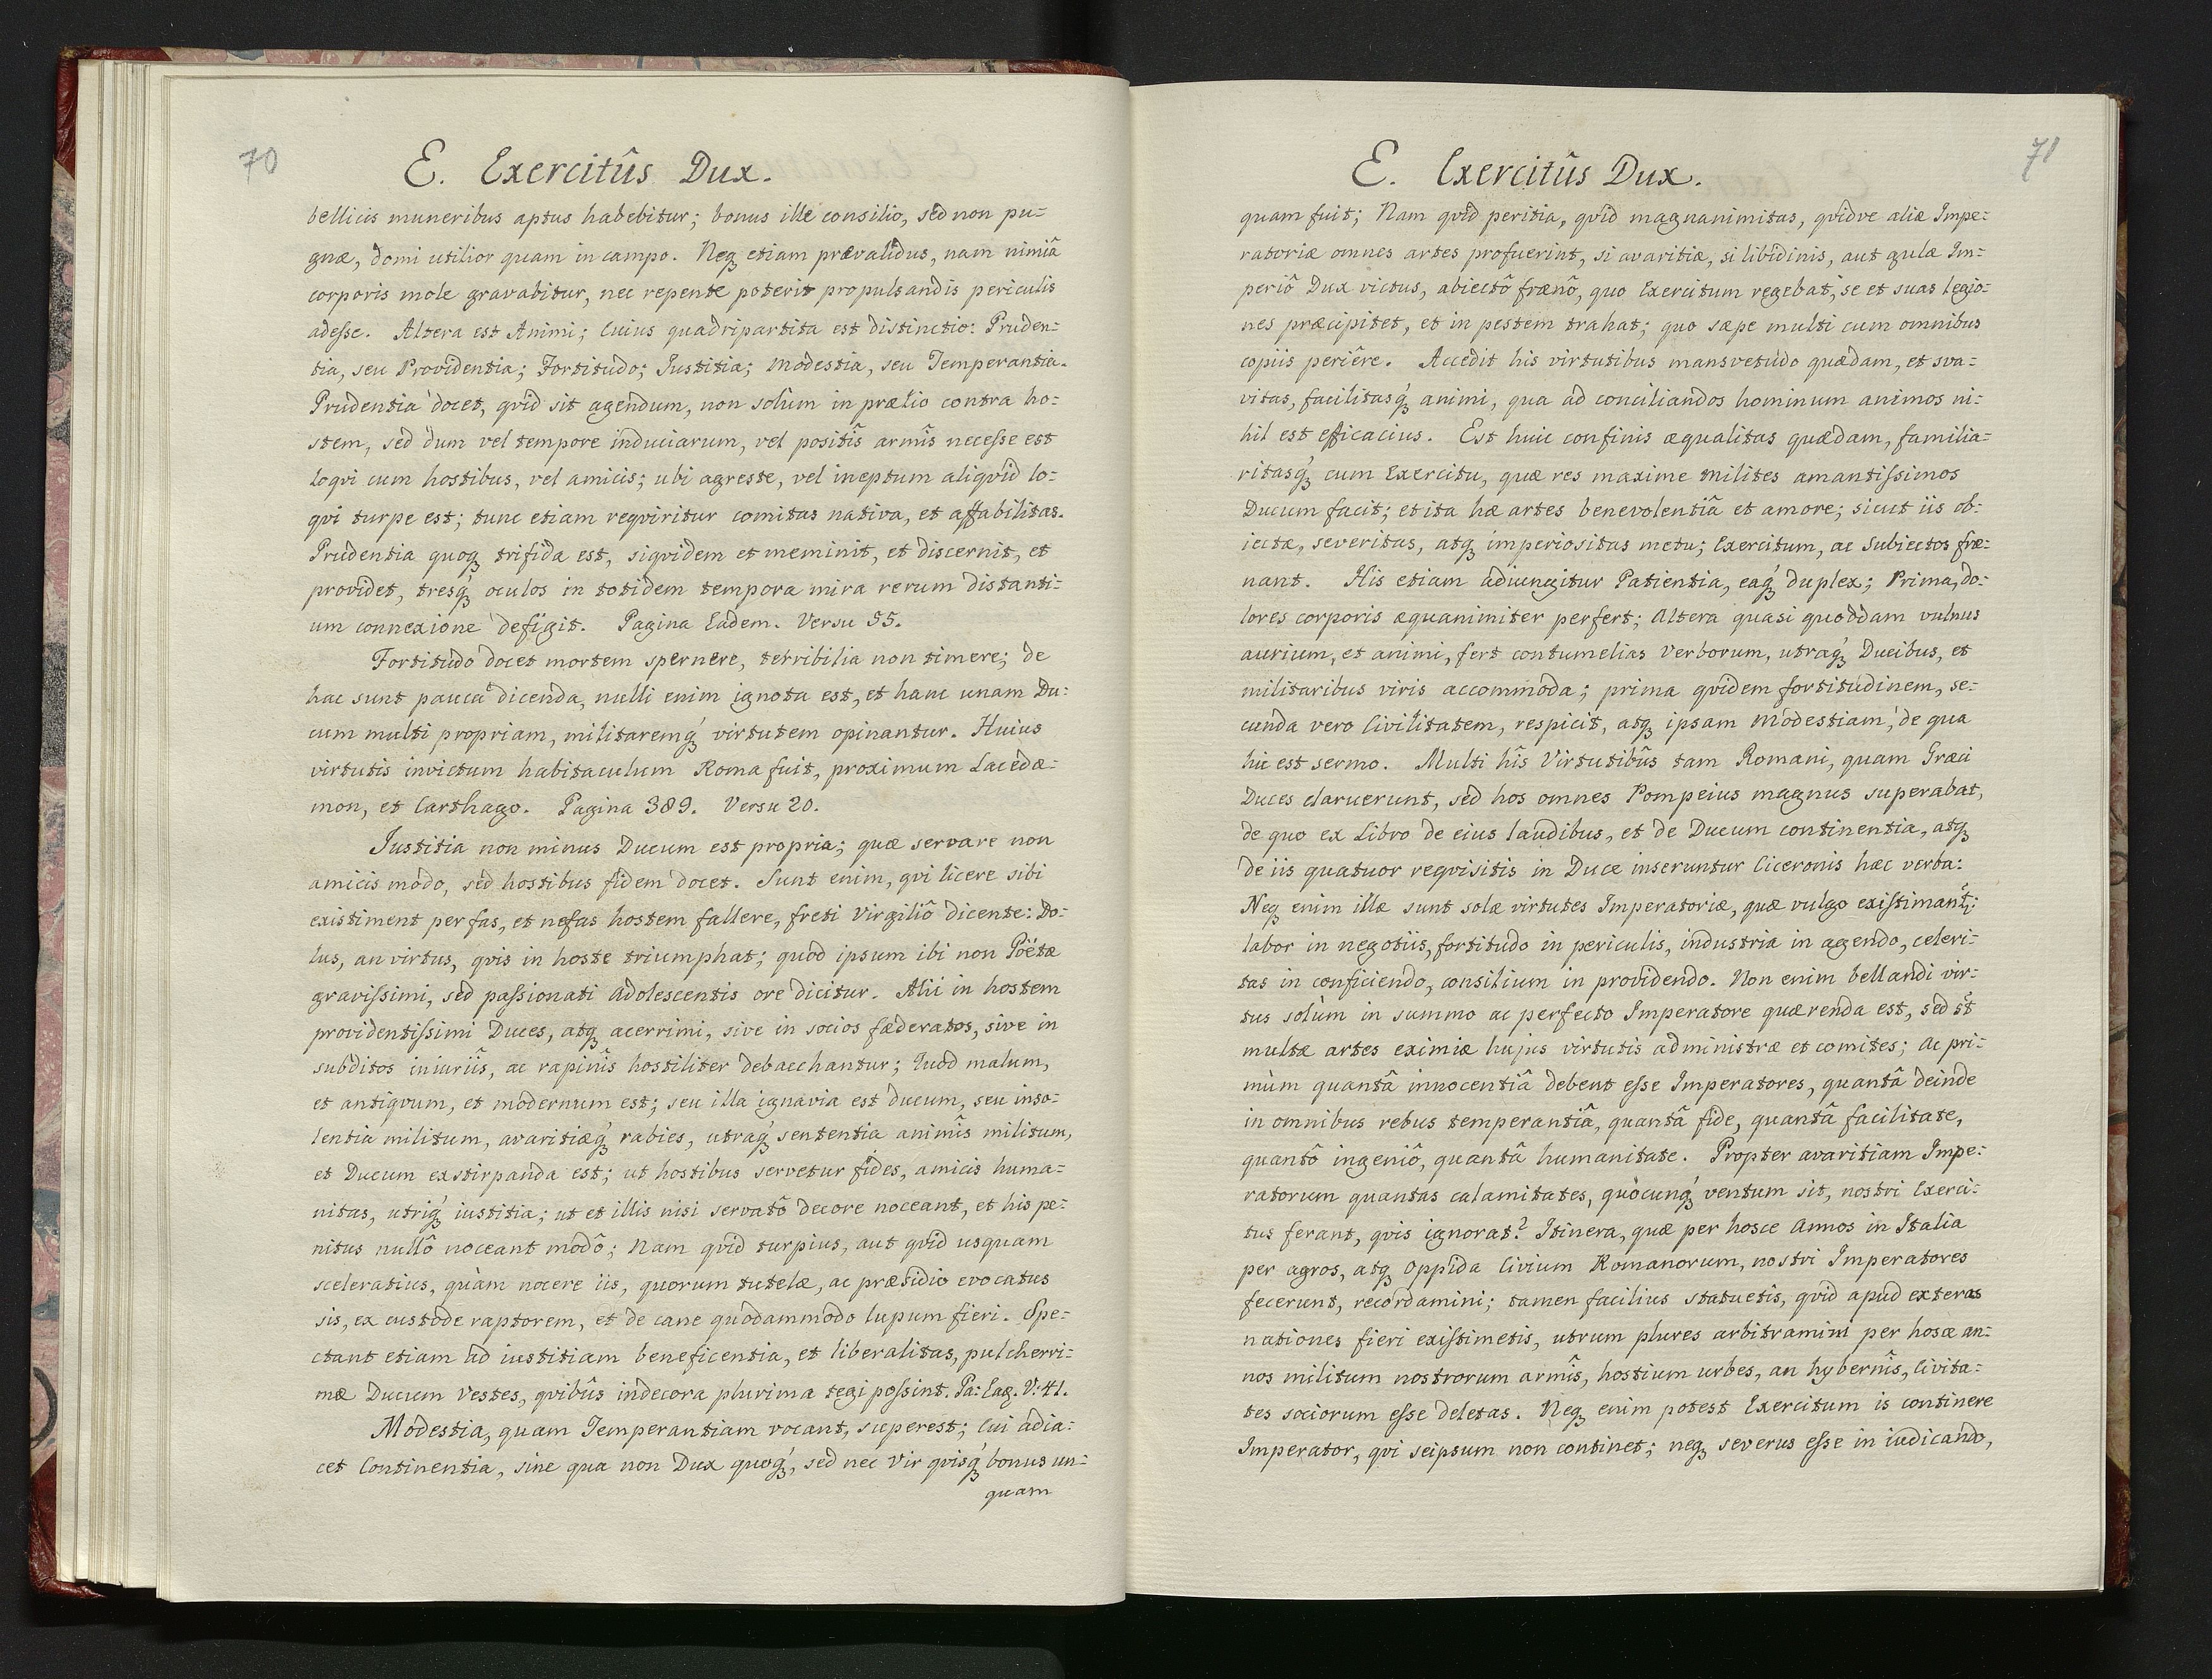 70
E. Exercitûs Dux.
bellicis muneribus aptus habebitur; bonus ille consilio, sed non pu=
gnæ, domi utilior quam in campo. Neqꝫ etiam prævalidus, nam nimiâ
corporis mole gravabitur, nec repente poterit propulsandis periculis
adeſse. Altera est Animi; Cuius quadripartita est distinctio: Pruden=
tia, seu Providentia; Fortitudo; Iustitia; Modestia, seu Temperantia.
Prudentia docet, qvid sit agendum, non solùm in prælio contra ho=
stem, sed dum vel tempore induciarum, vel positîs armîs neceſse est
loqvi cum hostibus, vel amicis; ubi agreste, vel ineptum aliqvid lo=
qvi turpe est; tunc etiam reqviritur comitas nativa, et affabilitas.
Prudentia quoqꝫ trifida est, siqvidem et meminit, et discernit, et
providet, tresq́ꝫ oculos in totidem tempora mira rerum distanti=
um connexione defigit. Pagina Eadem. Versu 55.
Fortitudo docet mortem spernere, terribilia non timere; de
hac sunt pauca dicenda, nulli enim ignota est, et hanc unam Du=
cum multi propriam, militaremq́ꝫ virtutem opinantur. Huius
virtutis invictum habitaculum Roma fuit, proximum Lacedæ=
mon, et Carthago. Pagina 389. Versu 20.
Iustitia non minus Ducum est propria; quæ servare non
amicis modo, sed hostibus fidem docet. Sunt enim, qvi licere sibi
existiment per fas, et nefas hostem fallere, freti Virgiliô dicente: Do=
lus, an virtus, qvis in hoste triumphat; quod ipsum ibi non Poëtæ
graviſsimi, sed paſsionati Adolescentis ore dicitur. Alii in hostem
providentiſsimi Duces, atqꝫ acerrimi, sive in socios fæderatos, sive in
subditos iniuriîs, ac rapinîs hostiliter debacchantur; Quod malum,
et antiqvum, et modernum est; seu illa ignavia est ducum, seu inso=
lentia militum, avaritiæq́ꝫ rabies, utraq́ꝫ sententia animîs militum,
et Ducum exstirpanda est; ut hostibus servetur fides, amicis huma=
nitas, utriq́ꝫ iustitia; ut et illis nisi servatô decore noceant, et his pe=
nitus nullô noceant modô; Nam qvid turpius, aut qvid usquam
sceleratius, quàm nocere iis, quorum tutelæ, ac præsidio evocatus
sis, ex custode raptorem, et de cane quodammodo lupum fieri. Spe=
ctant etiam ad iustitiam beneficentia, et liberalitas, pulcherri=
mæ Ducum vestes, qvibûs indecora plurima tegi poſsint. Pa: Eag. V: 41.
Modestia, quam Temperantiam vocant, superest; Cui adia=
cet Continentia, sine qua non Dux quoq́ꝫ, sed nec Vir qvisq́ꝫ bonus un=
quam
71
E. Exercitûs Dux.
quam fuit; Nam qvid peritia, qvid magnanimitas, qvidve aliæ Impe=
ratoriæ omnes artes profuerint, si avaritiæ, si libidinis, aut gulæ Im=
periô Dux victus, abiectô frænô, quo Exercitum regebat, se et suas legio=
nes præcipitet, et in pestem trahat; quo sæpe multi cum omnibus
copiis periêre. Accedit his virtutibus mansvetudo quædam, et sva=
vitas, facilitasq́ꝫ animi, qua ad conciliandos hominum animos ni=
hil est efficacius. Est huic confinis æqualitas quædam, familia=
ritasq́ꝫ cum Exercitu, quæ res maxime Milites amantiſsimos
Ducum facit; et ita hæ artes benevolentiâ et amore; sicut iis ob=
iectæ, severitas, atqꝫ imperiositas metu; Exercitum, ac Subiectos fræ=
nant. His etiam adiungitur Patientia, eaq́ꝫ duplex; Prima, do=
lores corporis æquanimiter perfert; Altera quasi quoddam vulnus
aurium, et animi, fert contumelias verborum, utraq́ꝫ Ducibus, et
militaribus viris accommoda; prima qvidem fortitudinem, se=
cunda vero Civilitatem, respicit, atqꝫ ipsam Modestiam, de qua
hic est sermo. Multi hîs Virtutibûs tam Romani, quam Græci
Duces claruerunt, sed hos omnes Pompeius magnus superabat,
de quo ex Libro de eius laudibus, et de Ducum continentia, atqꝫ
de iis quatuor reqvisitis in Duce inseruntur Ciceronis hæc verba:
Neqꝫ enim illæ sunt solæ virtutes Imperatoriæ, quæ vulgo exiſtimant:
labor in negotiis, fortitudo in periculis, industria in agendo, celeri=
tas in conficiendo, consilium in providendo. Non enim bellandi vir=
tus solùm in summo ac perfecto Imperatore quærenda est, sed st
multæ artes eximiæ hujus virtutis administræ et comites; Ac pri=
mùm quantâ innocentiâ debent eſse Imperatores, quantâ deinde
in omnibus rebus temperantiâ, quantâ fide, quantâ facilitate,
quantô ingeniô, quantâ humanitate. Propter avaritiam Impe=
ratorum quantas calamitates, quòcunq́ꝫ ventum sit, nostri Exerci=
tus ferant, qvis ignorat? Itinera, quæ per hosce Annos in Italia
per agros, atqꝫ Oppida Civium Romanorum, nostri Imperatores
fecerunt, recordamini; tamen facilius statuetis, qvid apud exteras
nationes fieri exiſtimetis, utrum plures arbitramini per hosce an=
nos militum nostrorum armîs, hostium urbes, an hybernîs, Civita=
tes sociorum eſse deletas. Neqꝫ enim potest Exercitum is continere
Imperator, qvi seipsum non continet; neqꝫ severus eſse in iudicando,